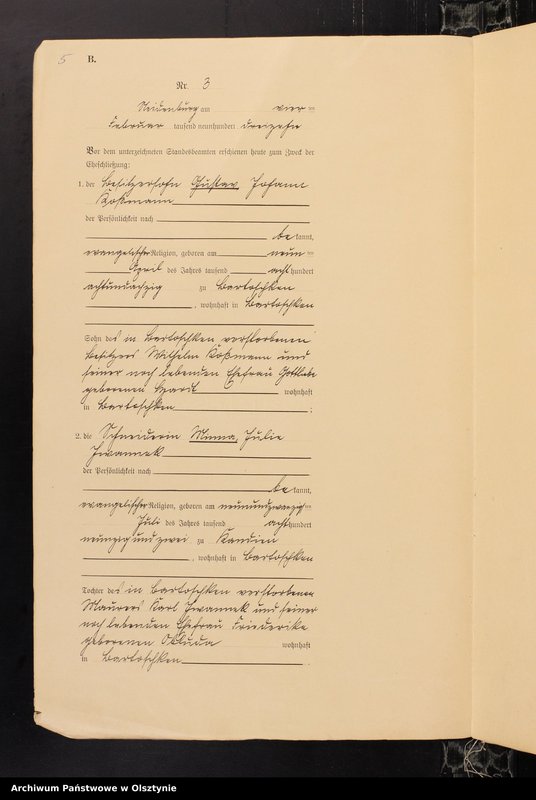 5 B.
Nr. 3
Neidenburg am vier ten
Februar tausend neunhundert dreizehn
Vor dem unterzeichneten Standesbeamten erschienen heute zum Zweck der
Eheschließung:
1. der Besitzersohn Gustav Johann
Koßmann
der Persönlichkeit nach
be kannt,
evangelischer Religion, geboren am neun ten
April des Jahres tausend acht hundert
achtundachzig zu Bartoschken
, wohnhaft in Bartoschken
Sohn des in Bartoschken verstorbenen
Besitzers Wilhelm Koßmann und
seiner noch lebenden Ehefrau Gottliebe
geborenen wohnhaft
in Bartoschken ;
2. die Schneiderin Minna, Julie
Iwannek
der Persönlichkeit nach
be kannt,
evangelischer Religion, geboren am neunundzwanzig ten
Juli des Jahres tausend acht hundert
neunzig und zwei zu Kandien
, wohnhaft in Bartoschken
Tochter des in Bartoschken verstorbenen
Maurers Karl Iwannek und seiner
noch lebenden Ehefrau Friederike
geborenen wohnhaft
in Bartoschken .
Archiwum Państwowe w Olsztynie